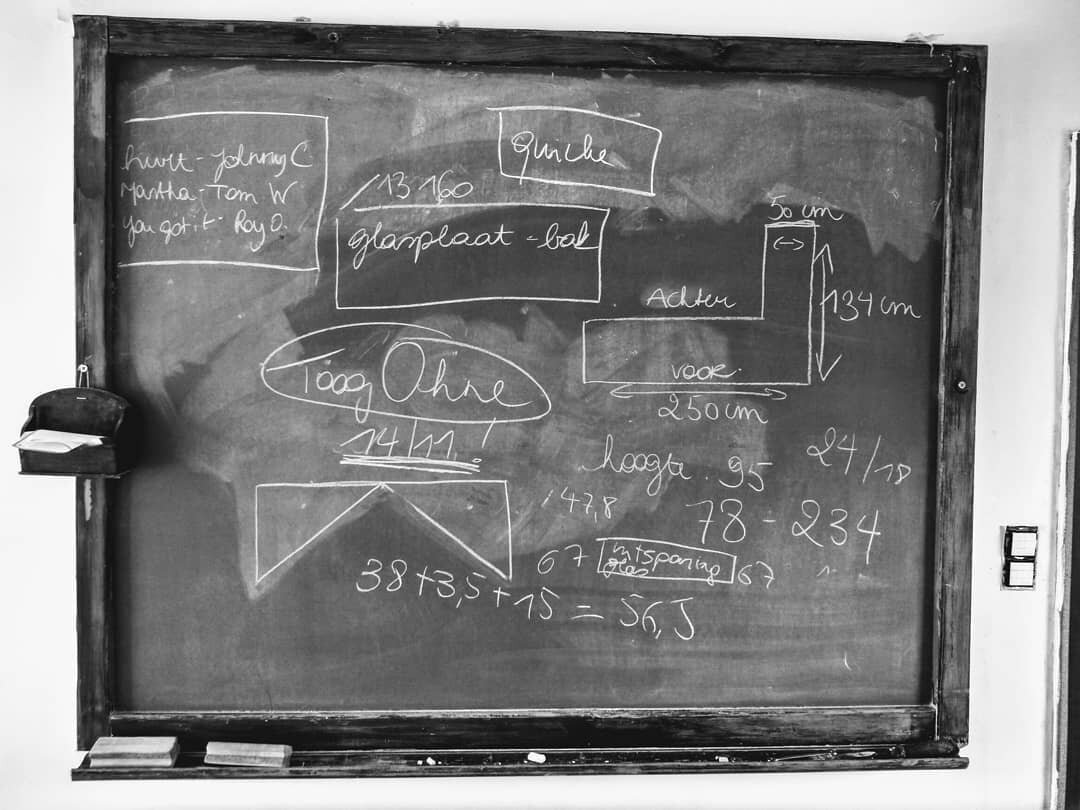 hurt - Johnny C
Martha - Tom W
you got it - Roy O.
quiche
13 160
glasplaat - bak
50 cm
134 cm
Achter
voor
250 cm
Toog Ohne
14/11 !
hoogte . 95
24/18
147,8
78 - 234
67
uitsparing
glas
67
38 + 3,5 + 15 = 56,5